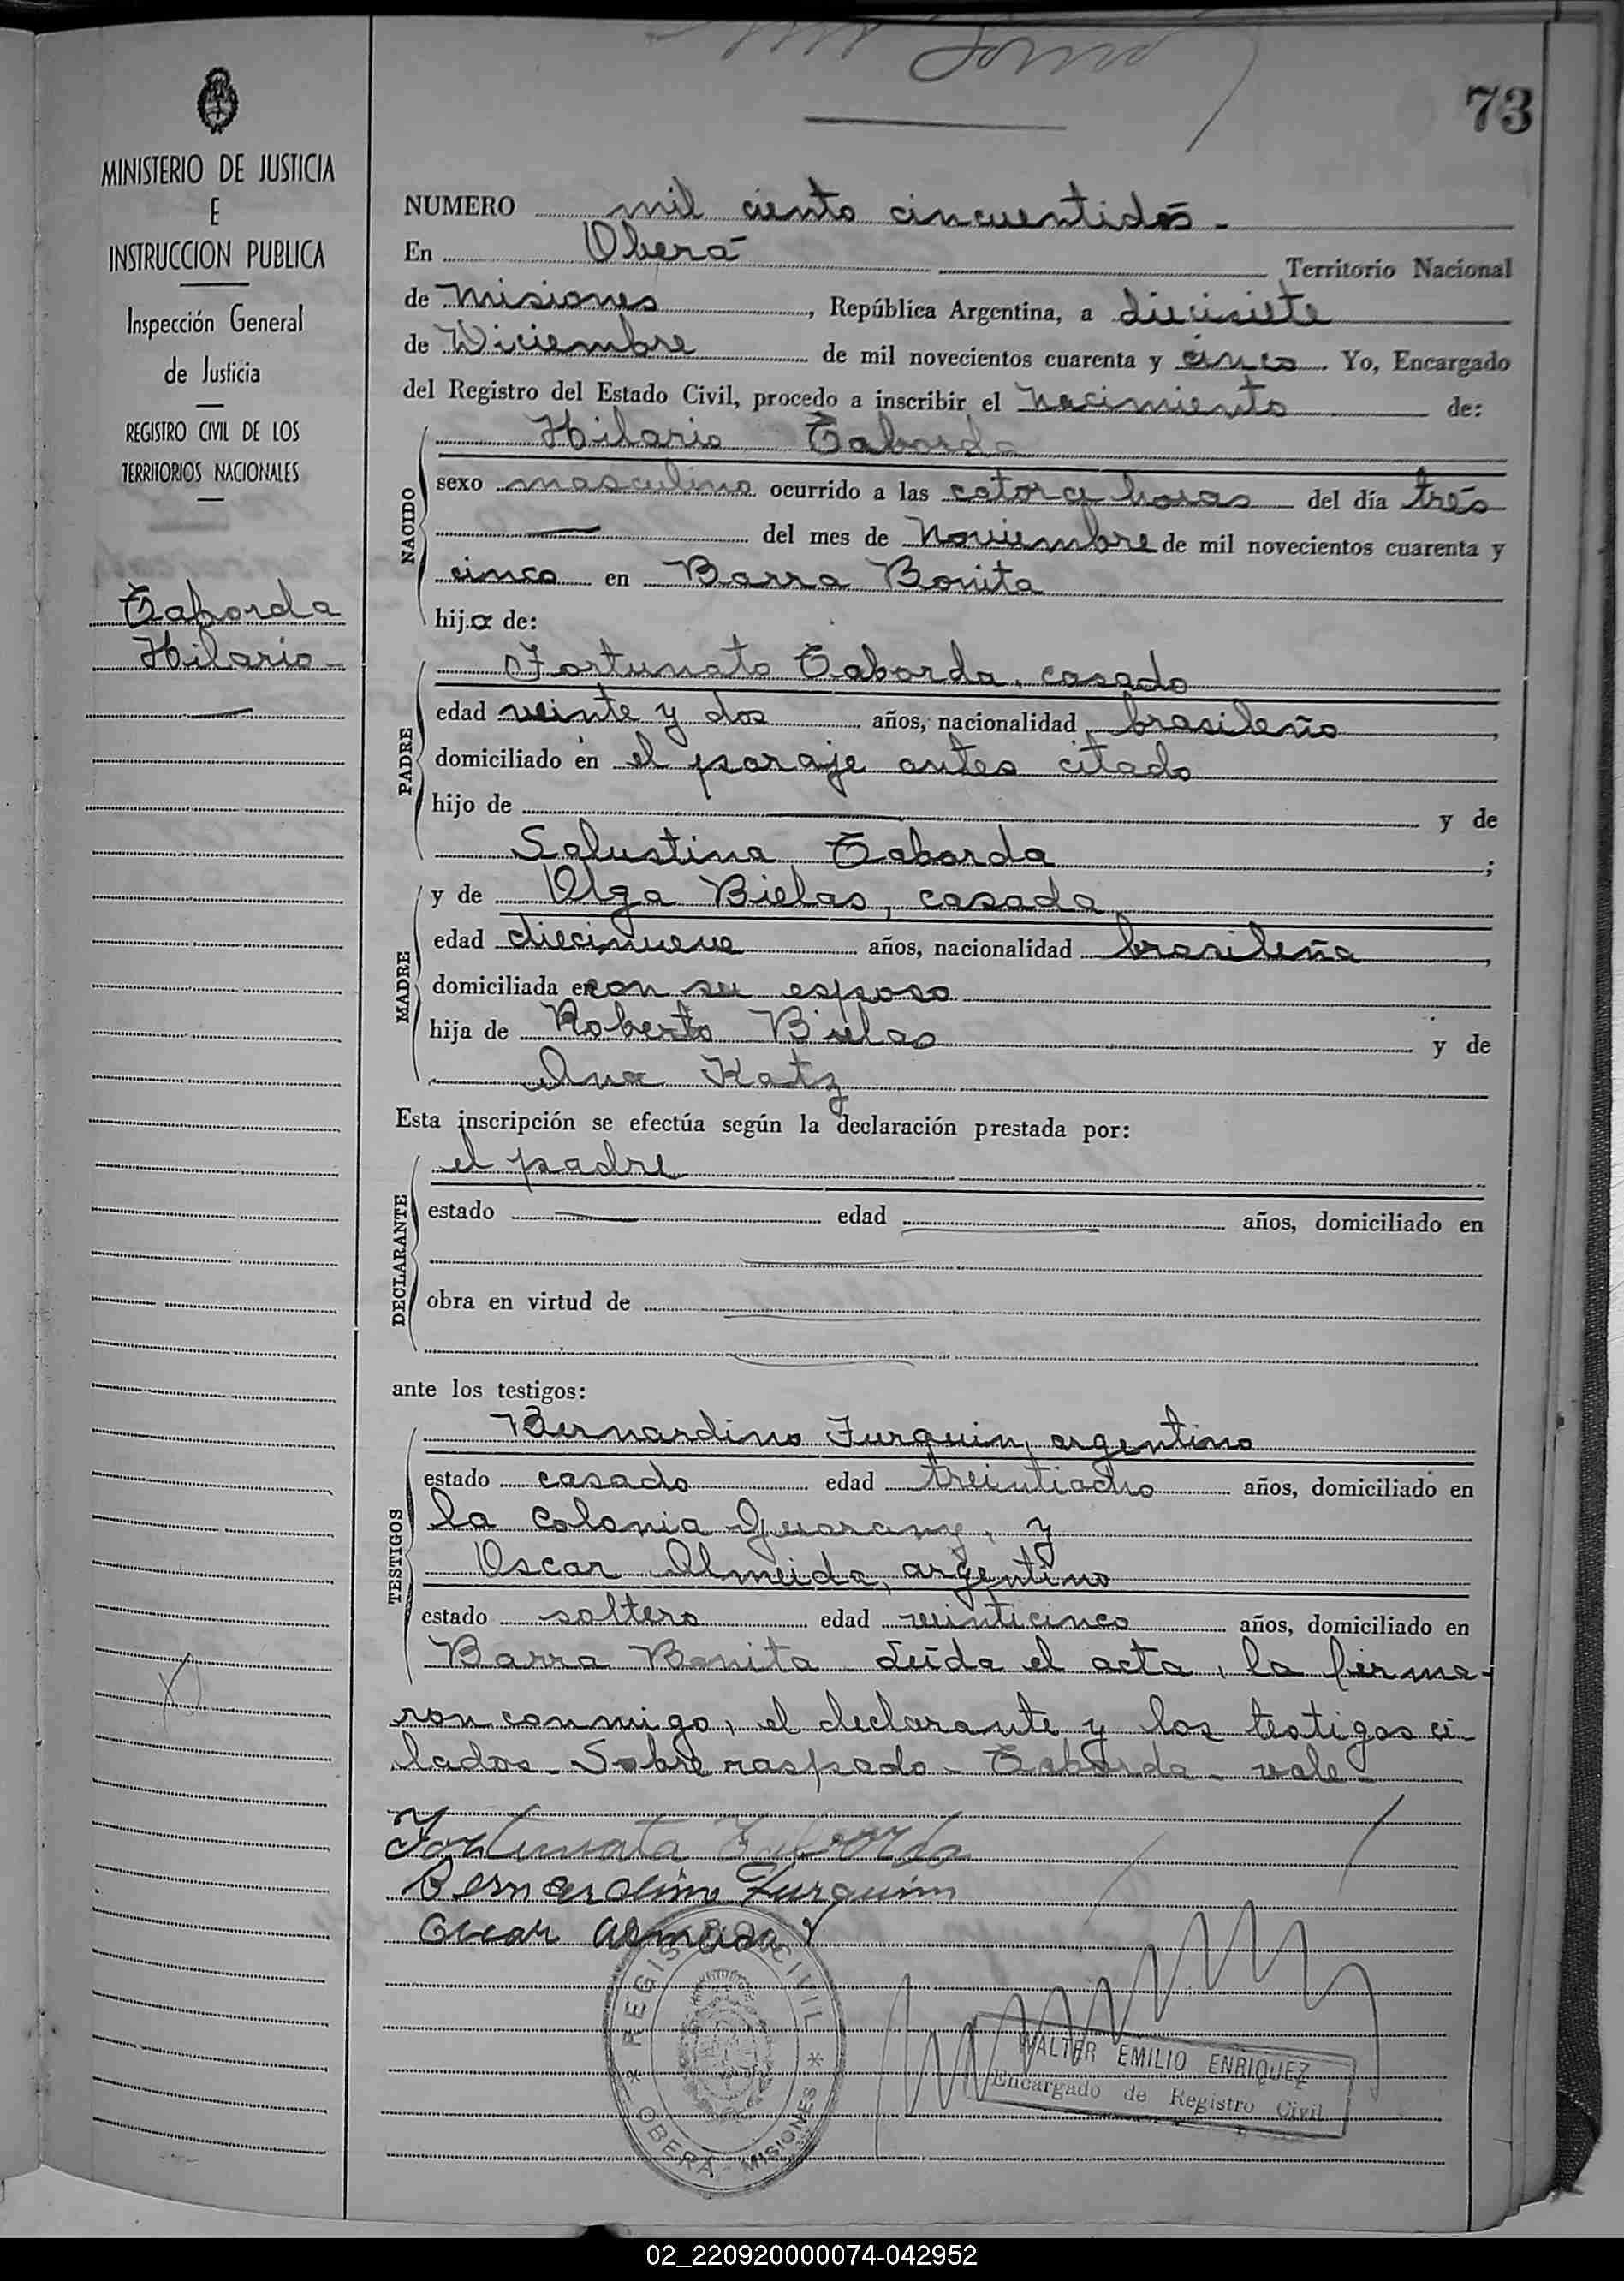 73
MINISTERIO DE JUSTICIA
E
INSTRUCCION PUBLICA
Inspección General
de Justicia
REGISTRO CIVIL DE LOS
TERRITORIOS NACIONALES
Taborda
Hilario
NUMERO mil ciento cincuentidós
En Oberá Territorio Nacional
de Misiones, República Argentina, a diecisiete
de Diciembre de mil novecientos cuarenta y cinco. Yo, Encargado
del Registro del Estado Civil, procedo a inscribir el nacimiento de:
NACIDO
Hilario Taborda
sexo masculino ocurrido a las catorce horas del día trés
del mes de Noviembre de mil novecientos cuarenta y
cinco en Barra Bonita
hijo de:
PADRE
Fortunato Taborda, casado
edad veinte y dos años, nacionalidad brasileño,
domiciliado en el paraje antes citado
hijo de y de
Salustina Taborda;
MADRE
y de Olga Bielas, casada
edad diecinueve años, nacionalidad brasileña,
domiciliada en con su esposo
hija de Roberto Bielas y de
Ana Katz
Esta inscripción se efectúa según la declaración prestada por:
DECLARANTE
el padre
estado edad años, domiciliado en
obra en virtud de
ante los testigos:
TESTIGOS
Bernardino Furquin, argentino
estado casado edad treintiocho años, domiciliado en
la Colonia Guarany, y
Oscar Almeida, argentino
estado soltero edad veinticinco años, domiciliado en
Barra Bonita Leída el acta, la firma-
ron conmigo, el declarante y los testigos ci-
tados - Sobre raspado - Taborda - vale -
Fortunato Taborda
Bernardino Furquim
Oscar Almeida
REGISTRO CIVIL
* OBERA - MISIONES *
WALTER EMILIO ENRIQUEZ
Encargado de Registro Civil
02_220920000074-042952